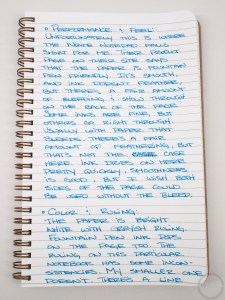 * PERFORMANCE & FEEL
UNFORTUNATELY THIS IS WHERE
THE WRITE NOTEPAD FALLS
SHORT FOR ME. THEIR PRODUCT
PAGE ON THEIR SITE SAYS
THAT THE PAPER IS FOUNTAIN
PEN FRIENDLY. IT'S SMOOTH,
AND INK DOESN'T FEATHER,
BUT THERE'S A FAIR AMOUNT
OF BLEEDING & SHOW THROUGH
ON THE BACK OF THE PAGE.
SOME INKS ARE FINE, BUT
OTHERS GO RIGHT THROUGH.
USUALLY WITH PAPER THAT
BLEEDS, THERE'S A FAIR
AMOUNT OF FEATHERING, BUT
THAT'S NOT THE CASE
HERE. INK DRIES ON HERE
PRETTY QUICKLY. SMOOTHNESS
IS GOOD. BUT I WISH BOTH
SIDES OF THE PAGE COULD
BE USED WITHOUT THE BLEED.
* COLOR & RULING:
THE PAPER IS BRIGHT
WHITE WITH GREYISH RULING.
FOUNTAIN PEN INK POPS
ON THE PAGE TOO. THE
RULING, ON THIS PARTICULAR
NOTEBOOK HAS SOME INCON-
SISTENCIES. MY SMALLER ONE
DOESN'T. THERE'S A LINE